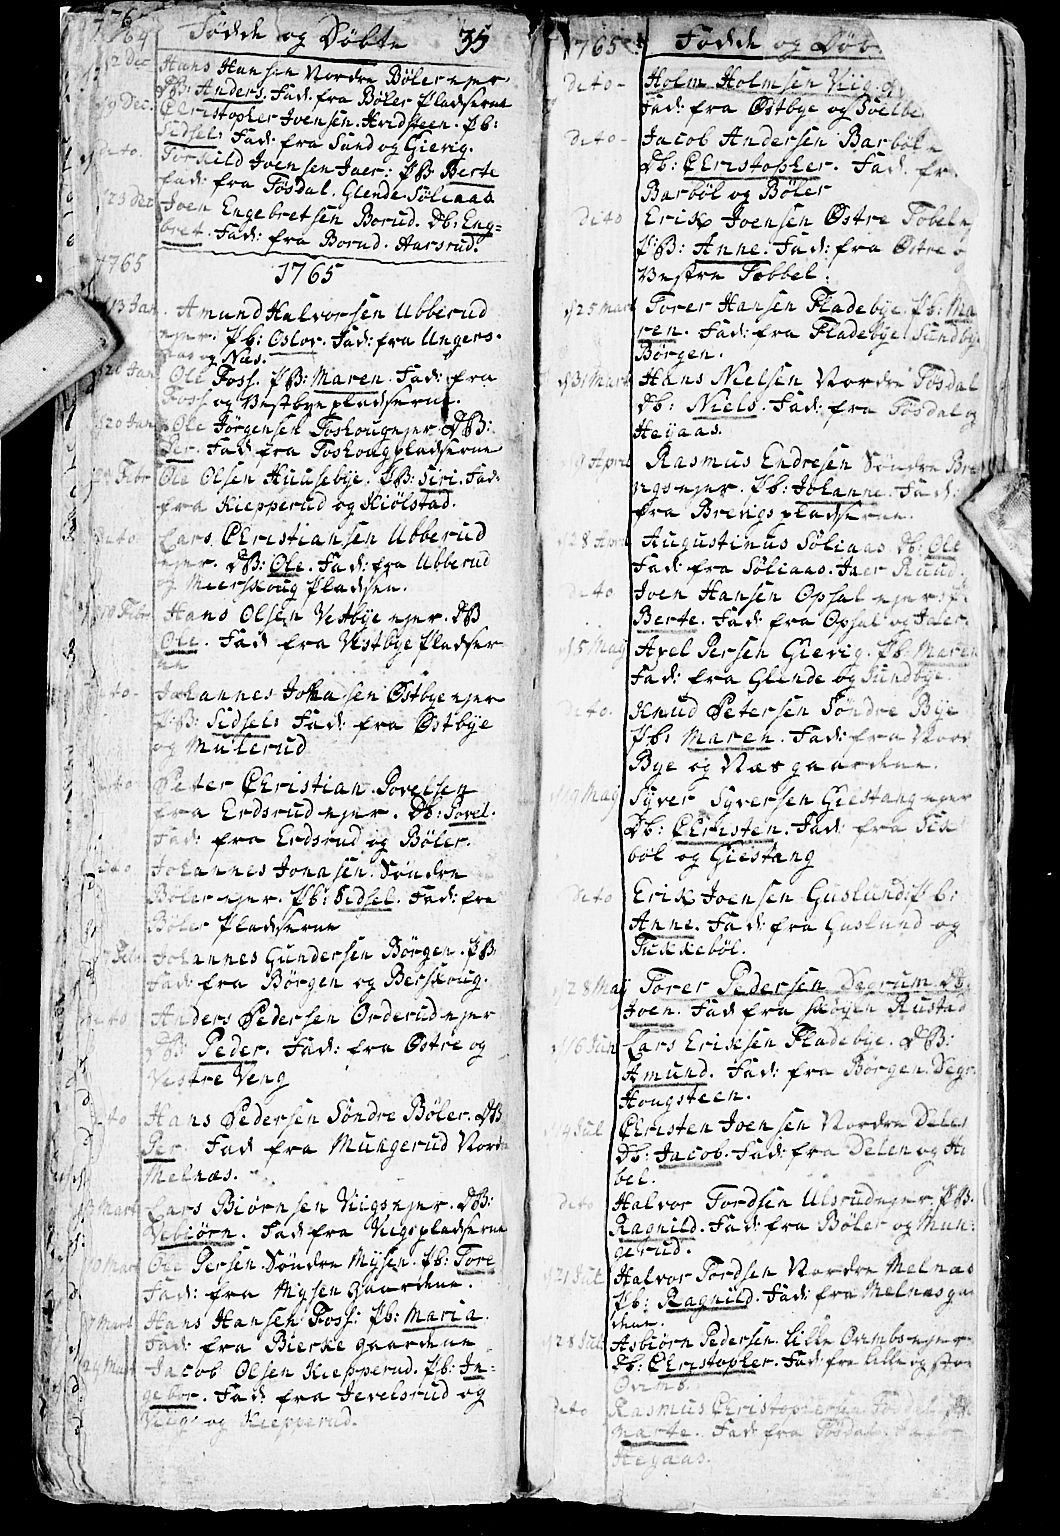 1764 Fødde og Døbte 35
12 Dec Hans Hansen Nordre Bøler ejer
DB: Anders. Fad: fra Bøler Pladserne
19 Dec. Christopher Joensen Hvidsteen. PB:
Sidsel: Fad: fra Sund og Gievig.
dito. Torkild Joensen Jaer: PB Berte
Fad: fra Tøsdal. Glende. Søliaas
23 Dec Joen Engebretsen Borud. Db: Eng=
bret. Fad: fra Borud. Harsrud.
1765 1765
13 Jan Amund Halvorsen Ubberud
ejer. Pb: Oslov. Fad: fra Ungers-
og Næs.
20 Jan Ole Foss. PB: Maren. Fad: fra
Foss og Vestbye pladserne.
20 Jan Ole Jørgensen Foshougejer. DB:
Per. Fad: fra Foshoug pladserne
Febr Ole Olsen Huusebye. PB: Siri. Fad:
fra Kiepperud og Kiølstad.
dito Lars Christiansen Ubberud
ejer. DB: Ole. Fad: fra Ubberud
og Meerskoug Pladsen.
10 Febr Hans Olsen Vestbye ejer. DB
Ole. Fad: fra Vestbye Pladser
ne
dito- Johannes Johansen Østbye ejer
PB: Sidsel: Fad: fra Østbye
og Mulerud
dito Peter Christian Povelsen
fra Erdsrud ejer. Db: Povel.
Fad: fra Erdsrud og Bøler.
dito Johannes Jonasen Søndre
Bøler ejer. Pb: Sidsel. Fad: fra
Bøler Pladserne
17 Feb. Johannes Gundersen Børgen. PB:
Fad: fra Børgen og Berskoug.
dito Anders Pedersen Orderud ejer
DB: Peder. Fad: fra Østre og
Vestre Veng
dito Hans Pedersen Søndre Bøler. DB
Per. Fad fra Mungerud Nordre
Melnæs.
3 Mart Lars Biørnsen Viigs ejer. DB:
Vebiørn. Fad: fra Viigs pladserne
10 Mart Ole Persen Søndre Mysen. Pb: Tore
Fad: fra Mysen Gaardene.
17 Mart Hans Hansen Foss: Pb: Maria.
Fad: fra Bierke gaardene
24 Mart Jacob Olsen Kiepperud. Pb: In=
gebor. Fad: fra Jevelsrud og
Viig og Kiepperud.
1765 Fødde og Døb
dito- Holm Holmsen Viig
Fad: fra Østbye og
dito- Jacob Andersen Barbøl
Db: Christopher. Fad: fr
Barbøl og Bøler
dito Erik Joensen Østre Tobel
PB: Anne. Fad: fra Østre
Vestre Tobbel.
25 Mart Torer Hansen Fladebye. Pb: Ma
ren. Fad: fra Fladebye. Sundby
Børgen.
31 Mart Hans Nielsen Nordre Tøsdal
Db: Niels. Fad: fra Tøsdal og
Heyaas.
19 April Rasmus Endresen Søndre Bre
vigs ejer. Pb: Johanne. Fad:
fra Brevigs pladserne.
28 April Augustinus Søliaas Db: Ole
Fad: fra Søliaas. Jaer Ruud.
dito Joen Hansen Opsal ejer:
Berte. Fad: fra Opsal og Jaler.
5 Maj Axel Persen Gievig. Pb: Maren
Fad: fra Glende og Sundbye.
dito. Knud Petersen Søndre Bye
Pb: Maren. Fad: fra Nord
Bye og Næs gaardene.
19 Maj Syver Syversen Giestang ejer
Db: Christen. Fad: fra
bøl og Giestang
dito Erik Joensen Guslund: Pb:
Anne. Fad: fra Guslund og
Tukkebøl.
28 Maj Torer Pedersen Degrum. Db:
Joen. Fad: fra Skøyen Rustad
16 Jun Lars Eriksen Fladebye. DB:
Amund. Fad: fra Borgen. Degr.
Hougsteen.
14 Jul Christen Joensen Nordre Delen
Db: Jacob. Fad: fra Delen og Ho
bel.
dito Halvor Tordsen Ulsrudejer. PB:
Ragnild. Fad: fra Bøler og Mun=
gerud.
21 Jul Halvor Tordsen Nordre Melnæs
Pb: Ragnild. Fad: fra Melnæs gaar
dene.
28 Jul Asbiørn Pedersen Lille Ormbs ejer
Db: Christopher. Fad: fra Lille og Stor
Ormb.
dito Rasmus Christophersen Tøsdal
Marte. Fad: fra Tøsdal
Heyaas.